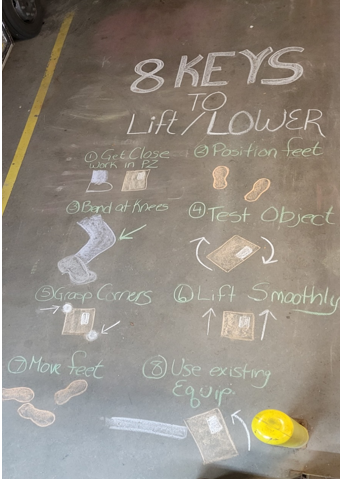 8 KEYS
TO
Lift/LOWER
① Get Close
Work in PZ
② Position feet
③ Bend at Knees
④ Test Object
⑤ Grasp Corners
⑥ Lift Smoothly
⑦ Move feet
⑧ Use existing
Equip.